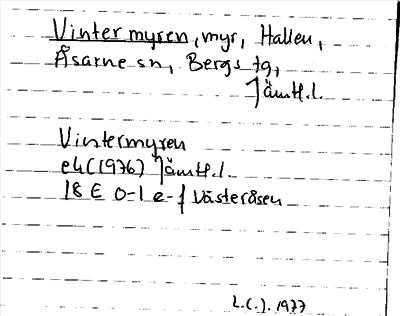 Vintermyren, myr, Hallen,
Åsarne sn, Bergs tg,
Jämtl.l.
Vintermyren
ek (1976) Jämtl.l.
18 E 0-1 e-f Västeråsen
L.(.). 1977